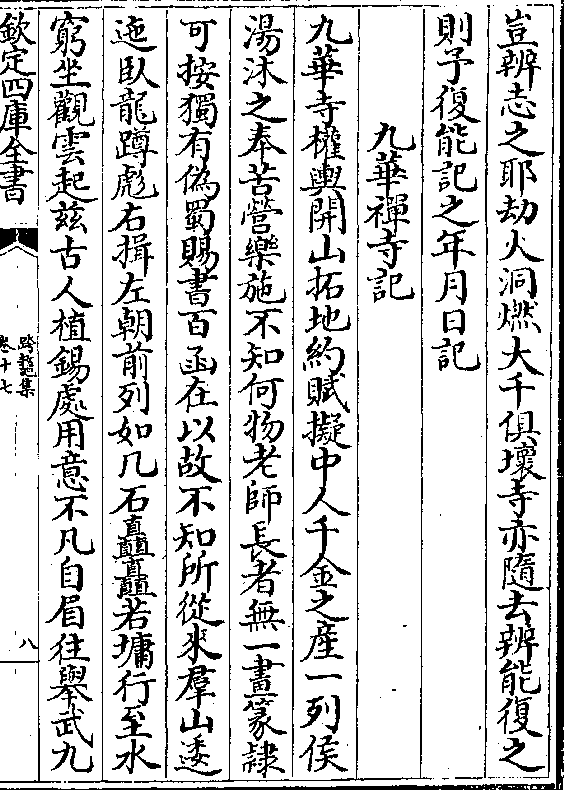 豈辨志之耶劫火洞燃大千俱壞寺亦隨去辨能復之
則予復能記之年月日記
九華禪寺記
九華寺權輿開山拓地約賦擬中人千金之産一列侯
湯沐之奉苦營樂施不知何物老師長者無一畫篆隸
可按獨有偽蜀賜書百函在以故不知所從來羣山逶
迤臥龍蹲彪右揖左朝前列如几石矗矗若墉行至水
窮坐觀雲起兹古人植錫處用意不凡自眉往舉武九
欽定四庫全書
跨鼇集
卷十七
八